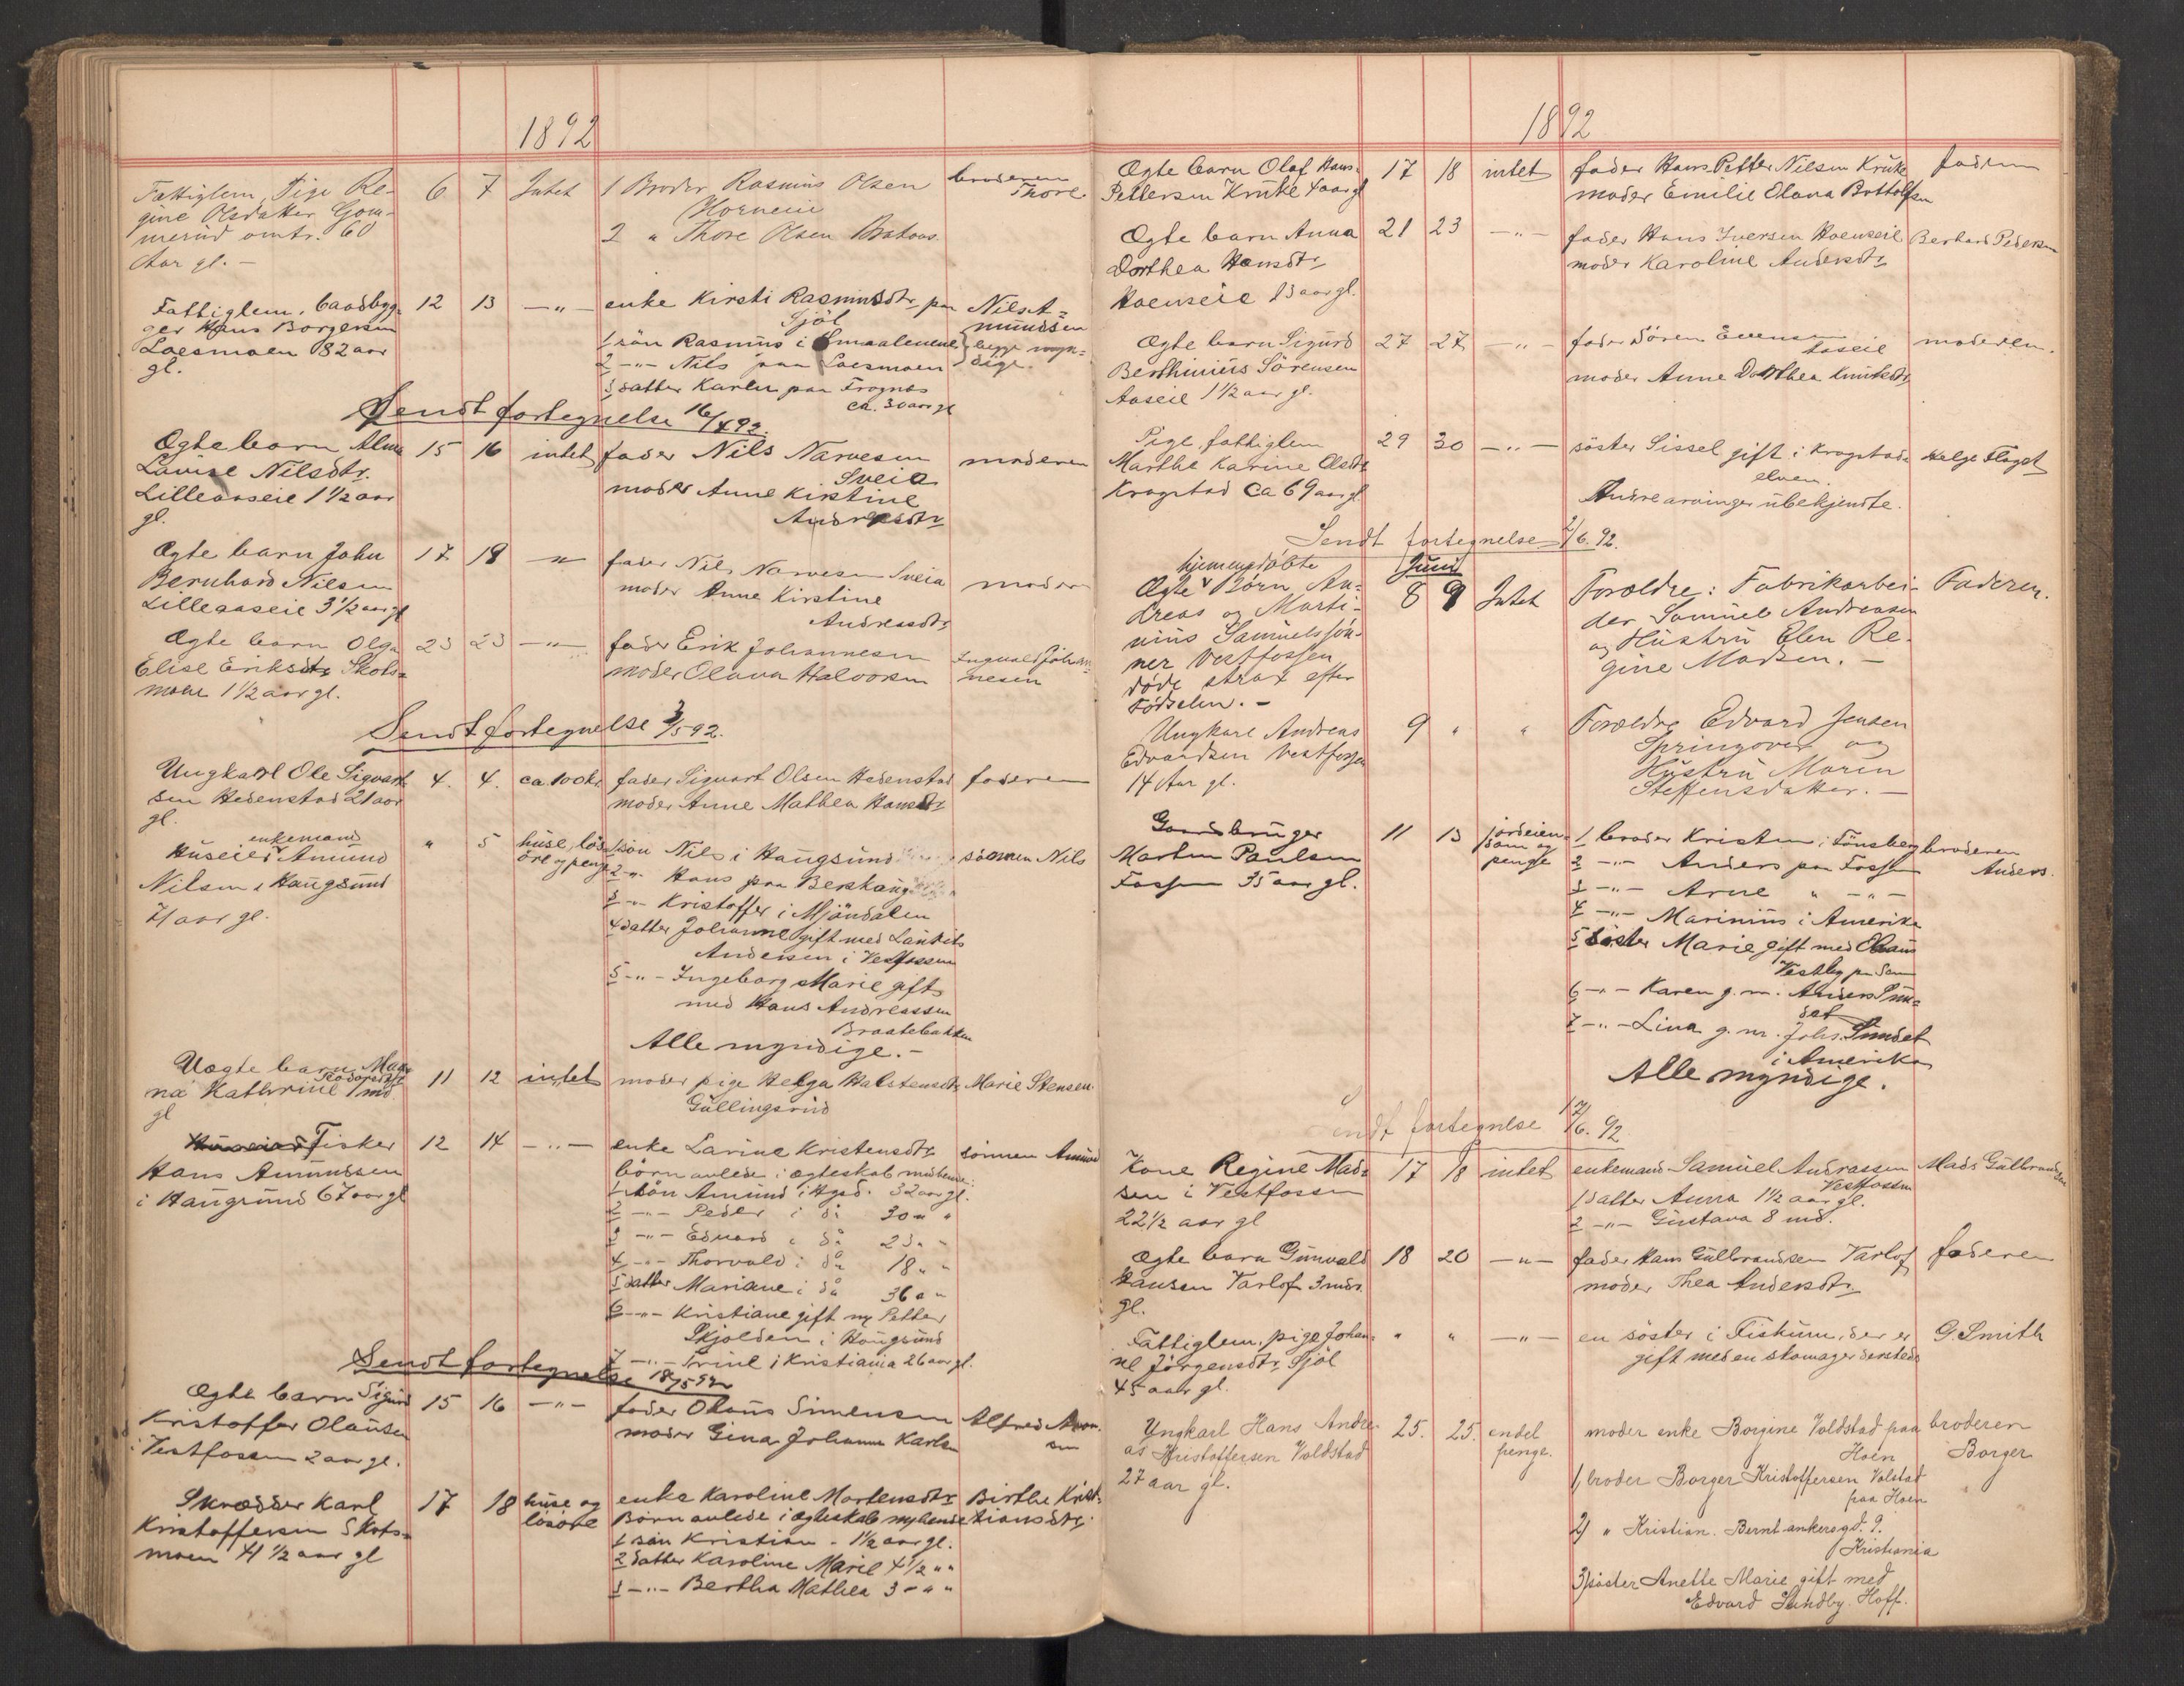 1892
Fattiglem, Pige Re- 6 7 Intet 1 Broder Rasmus Olsen broderen
gine Olsdatter Gom- Horneie Thore.
merud omtr. 60 2 " Thore Olsen
Aar gl. -
Fattiglem, baadbyg- 12 13 - " - enke Kirsti Rasmusdtr paa Nils A=
ger Hans Borgersen Sjöl mundsen
Loesmoen 82 aar 1 sön Rasmus i Smaalenene begge myn=
gl. 2 - " - Nils paa Loesmoen dige.
3 datter Karen paa Frognes
ca. 30 aar gl
Sendt fortegnelse 16/4 92.
Ægte barn Alma 15 16 intet fader Nils Narvesen moderen
Lovise Nilsdtr. Sveia
Lilleaaseie 1 1/2 aar moder Anne Kirstine
gl. Andersdtr
Ægte barn John 17 18 " fader Nils Narvesen Sveia moder
Bernhard Nilsen moder Anne Kirstine
Lilleaaseie 3 1/2 aar gl Andersdtr
Ægte barn Olga 23 23 - " - fader Erik Johannesen Ingvald Johan=
Elise Eriksdtr Skots= moder Olava Halvorsen nesen
moen 1 1/2 aar gl.
Sendt fortegnelse 3/5 92.
Ungkarl Ole Sigvart= 4. 4. ca. 100 kr. fader Sigvart Olsen Hedenstad faderen
sen Hedenstad 21 aar moder Anne Mathea Hansdtr
gl.
enkemand
Huseier Amund " 5 huse, lös= 1 sön Nils i Haugsund sönnen Nils
Nilsen i Haugsund öre og penge 2 - " - Hans paa Berghaug
71 aar gl. 3 - " - Kristoffer i Mjöndalen
4 datter Johanne gift med Lauritz
Andersen i Vestfossen
5 - " - Ingeborg Marie gift
med Hans Andreassen
Braatebakken
Alle myndige. -
Uægte barn Mag=
na Kathrine Teodorsdtr 1 md. 11 12 intet moder pige Helga Halstensdtr Marie Stensen
gl Gullingsrud
Fisker 12 14 - " - enke Larine Kristensdtr sönnen Amund
Hans Amundsen börn avlede i ægteskab med hende:
i Haugsund 67 aar gl 1 sön Amund i Hgsd. 32 aar gl.
2 - " - Peder i do 30 " "
3 - " - Edvard i do 23 " "
4 - " - Thorvald i do 18 " "
5 datter Mariane i do 36 " "
6 - " - Kristiane gift m/ Petter
Skjolden i Haugsund
7 - " - Trine i Kristiania 26 aar gl.
Sendt fortegnelse 18/5 92
Ægte barn Sigurd 15 16 - " - fader Olaus Simensen Alfred
Kristoffer Olausen moder Gina Johanne Karlsen
i Vestfossen 2 aar gl.
Skrædder Karl 17 18 huse og enke Karoline Mortensdtr Birthe Krist=
Kristoffersen Skots= lösöre Börn avlede i ægteskab m/ hende tiansdtr.
moen 41 1/2 aar gl 1 sön Kristian - 1 1/2 aar gl.
2 datter Karoline Marie 4 1/2 " "
3 - " - Bertha Mathea 3 - " "
1892
Ægte barn Olaf Hans- 17 18 intet fader Hans Petter Nilsen Kruke faderen
Pettersen Kruke 1 aar gl moder Emilie Olava Bottolfsen
Ægte barn Anna 21 23 - " - fader Hans Iversen Hoenseie Berhard Pedersen
Dorthea Hansdtr moder Karoline Andersdtr
Hoenseie 13 aar gl.
Ægte barn Sigurd 27 27 - " - fader Sören Evensen moderen.
Berthinius Sörensen Aaseie
Aaseie 1 1/2 aar gl. moder Anne Dorthea Knutsdtr
Pige, fattiglem 29 30 - " - söster Sissel gift i Krogstad= Helge Flaget
Marthe Karine Olsdtr elven.
Krogstad ca 69 aar gl Andre arvinger ubekjendte.
Sendt fortegnelse 2/6. 92.
hjemmedöbte Juni
Ægte Børn An- 8 9 Intet Forældre: Fabrikarbei- Faderen.
dreas og Marti- der Samuel Andreasen
nius Samuelssøn- og Hustru Elen Re-
ner Vestfossen gine Madsen. -
døde strax efter
Fødselen. -
Ungkarl Andreas 9 " " Forældre Edvard Jensen
Edvardsen Vestfossen Springover og
14 Aar gl. Hustru Maren
Steffensdatter. -
Gaardbruger 11 13 jordeien= 1 broder Kristen i Tönsberg broderen
Morten Paulsen dom og 2 - " - Anders paa Fossen Anders.
Fossen 35 aar gl. penge 3 - " - Arne " - " -
4 - " - Marinius i Amerika
5 söster Marie gift med Olaus
Vestby paa Sam
6 - " - Karen g. m. Anders Sun=
det
7 - " - Lina g. m. Johs. Sundet
i Amerika
Alle myndige.
Sendt fortegnelse 17/6. 92
Kone Regine Mad= 17 18 intet enkemand Samuel Andrassen Mads Gulbrandsen
sen i Vestfossen Vestfossen
22 1/2 aar gl 1 datter Anna 1 1/2 aar gl.
2 - " - Gustava 8 md.
Ægte barn Gunvald 18 20 - " - fader Hans Gulbrandsen Varlof faderen
Hansen Varlof 3 mdr. moder Thea Andersdtr
gl.
Fattiglem, pige Johan= " " - " - en söster i Fiskum, der er G. Smith
ne Jörgensdtr Sjöl gift med en skomager dersteds
45 aar gl.
Ungkarl Hans Andre- 25. 25. endel moder enke Borgine Voldstad paa broderen
as Kristoffersen Voldstad penge. Hoen Borger
27 aar gl. 1, broder Borger Kristoffersen Volstad
paa Hoen
2) " Kristian. Bernt ankersgd. 9.
Kristiania
3) söster Anette Marie gift med
Edvard Sundby. Hoff.